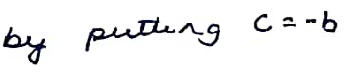 by putting c = -b